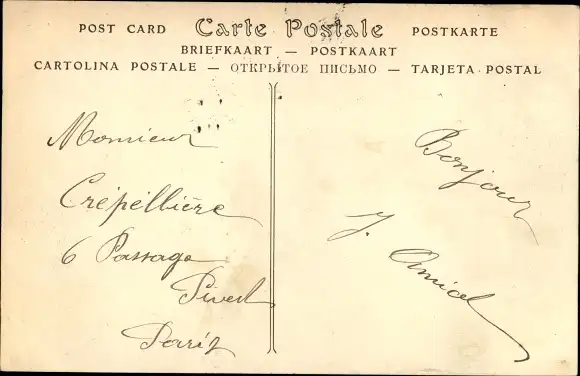 POST CARD Carte Postale POSTKARTE
BRIEFKAART — POSTKAART
CARTOLINA POSTALE — ОТКРЫТОЕ ПИСЬМО — TARJETA POSTAL
Monsieur
Crépellière
6 Passage
Pivert
Paris
Bonjour
J. Amiel